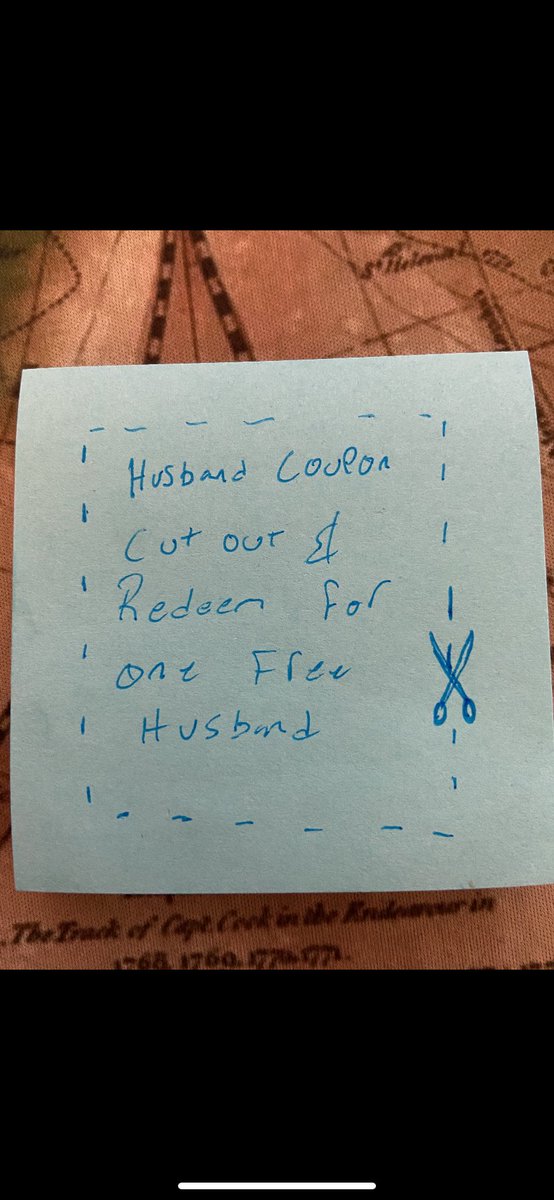 St Helena
Husband Coupon
Cut out &
Redeem for
one Free
Husband
The Track of Capt. Cook in the Endeavour in
1768, 1769, 1770, 1771.